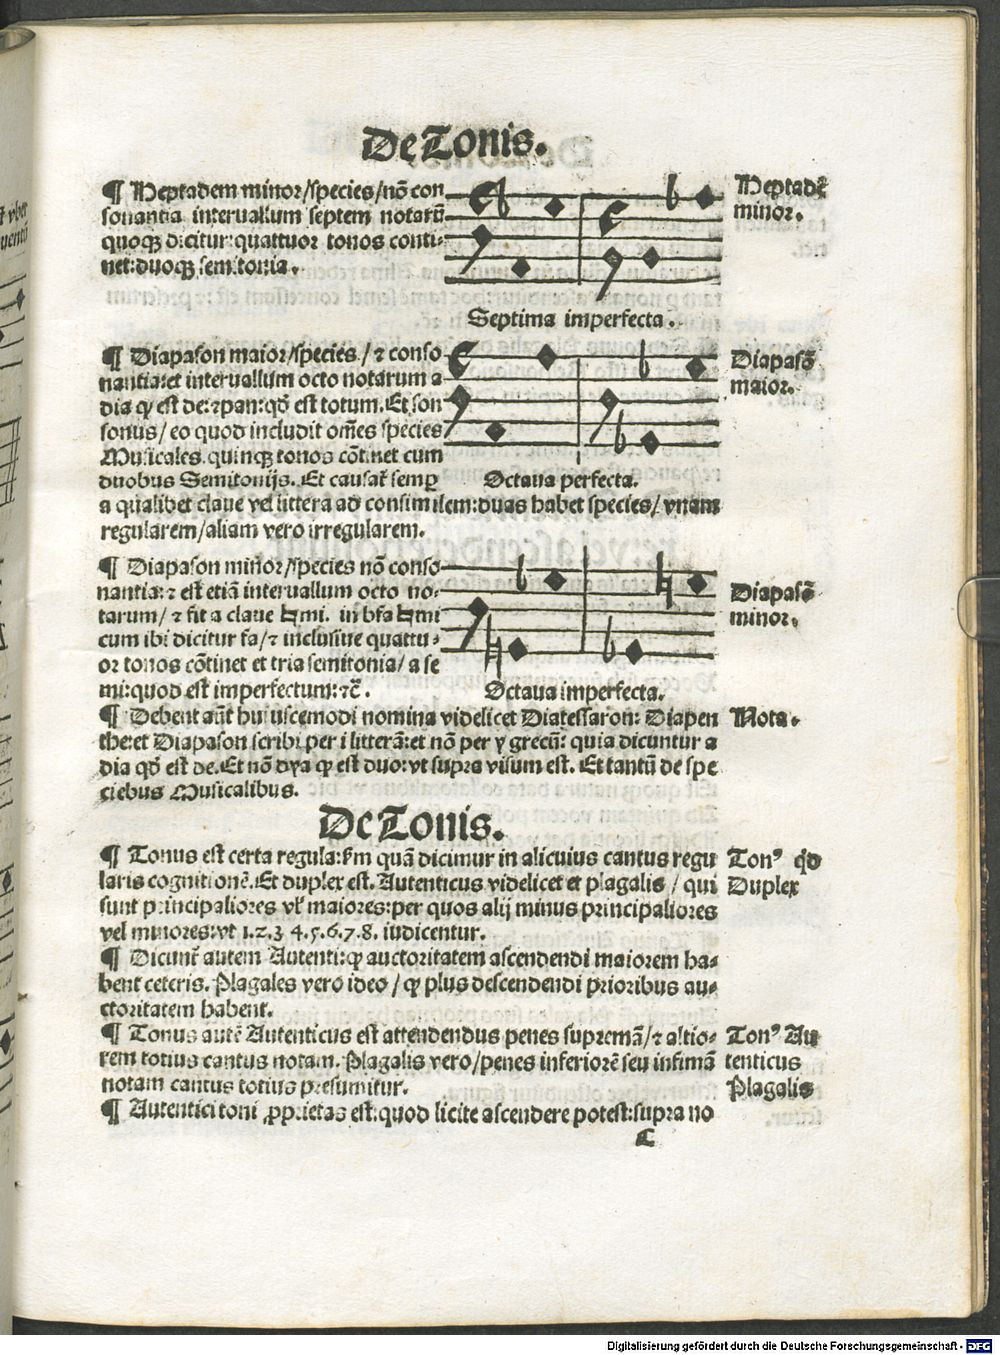 De Tonis.
¶ Heptadem minor/species/nō con
sonantia interuallum septem notarū
quoqʒ dicitur:quattuor tonos conti-
net:duoqʒ semitonia.
Heptadē
minor.
Septima imperfecta.
¶ Diapason maior/species/⁊ conso
nantia:et interuallum octo notarum a
dia qͥ est de:⁊pan:qd̄ est totum. Et son
sonus/eo quod includit om̄es species
Musicales.quinqʒ tonos cōtinet cum
duobus Semitonijs. Et causat᷑ semꝑ
a qualibet claue vel littera ad consimilem:duas habet species/vnam
regularem/aliam vero irregularem.
Diapasō
maior.
Octaua perfecta.
¶ Diapason minor/species nō conso-
nantia:⁊ est etiā interuallum octo no-
tarum/⁊ fit a claue ♮mi. in bfa♮mi
cum ibi dicitur fa/⁊ inclusiue quattu-
or tonos cōtinet et tria semitonia/a se
mi:quod est imperfectum:⁊c̄.
Diapasō
minor.
Octaua imperfecta.
¶ Debent aūt huiuscemodi nomina videlicet Diatessaron: Diapen
the:et Diapason scribi per i litterā:et nō per y grecū: quia dicuntur a
dia qd̄ est de.Et nō dya qͥ est duo:vt supra visum est. Et tantū de spe
ciebus Musicalibus.
Nota.
De Tonis.
¶ Tonus est certa regula:s̄m quā dicimur in alicuius cantus regu
laris cognitionē.Et duplex est. Autenticus videlicet et plagalis / qui
sunt principaliores vl̄ maiores:per quos alij minus principaliores
vel minores:vt 1.2.3 4.5.6.7.8. iudicentur.
Tonꝰ qd̄
Duplex
¶ Dicunt᷑ autem Autenti:qͥ auctoritatem ascendendi maiorem ha-
bent ceteris. Plagales vero ideo / qͥ plus descendendi prioribus au-
ctoritatem habent.
¶ Tonus autē Autenticus est attendendus penes supremā/⁊ altio-
rem totius cantus notam. Plagalis vero/penes inferiorē seu infimā
notam cantus totius presumitur.
Tonꝰ Au
tenticus
Plagalis
¶ Autentici toni ꝓprietas est:quod licite ascendere potest:supra no
C
Digitalisierung gefördert durch die Deutsche Forschungsgemeinschaft - DFG